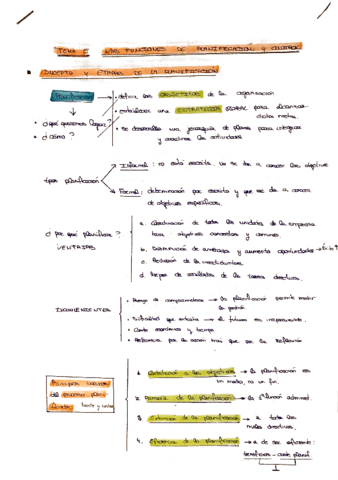 TEMA LAS FUNCIONES DE PLANIFICACIÓN Y CONTROL
CONCEPTO Y ETAPAS DE LA PLANIFICACIÓN
Planificación
definir los objetivos de la organización
establecer una estrategia global para alcanzar
dichas metas.
se desarrolla una jerarquía de planes para integrar
y coordinar las actividades
¿qué queremos lograr?
¿cómo?
tipos planificación
Informal: no está escrita, no se dan a conocer los objetivos
Formal: determinación por escrito y que se da a conocer
de objetivos específicos.
¿por qué planificar?
VENTAJAS
a. Coordinación de todas las unidades de la empresa
hacia objetivos concretos y comunes.
b. Disminución de amenazas y aumenta oportunidades → Éxito?
c. Reducción de la incertidumbre.
d. de resultados de las tareas directivas.
INCONVENIENTES
la planificación permite medir
la gestión.
Dificultad que entraña → el futuro es impredecible.
Coste económico y tiempo
Preferencia por la acción más que por la reflexión
Principios básicos
del proceso plani-
ficador
1. Orientación a los objetivos → la planificación es
un medio, no un fin.
2. Primacía de la planificación → la 1ª función admvt.
3. Extensión de la planificación → a todos los
niveles directivos.
4. Eficiencia de la planificación → ha de ser eficiente:
beneficios - coste planif.